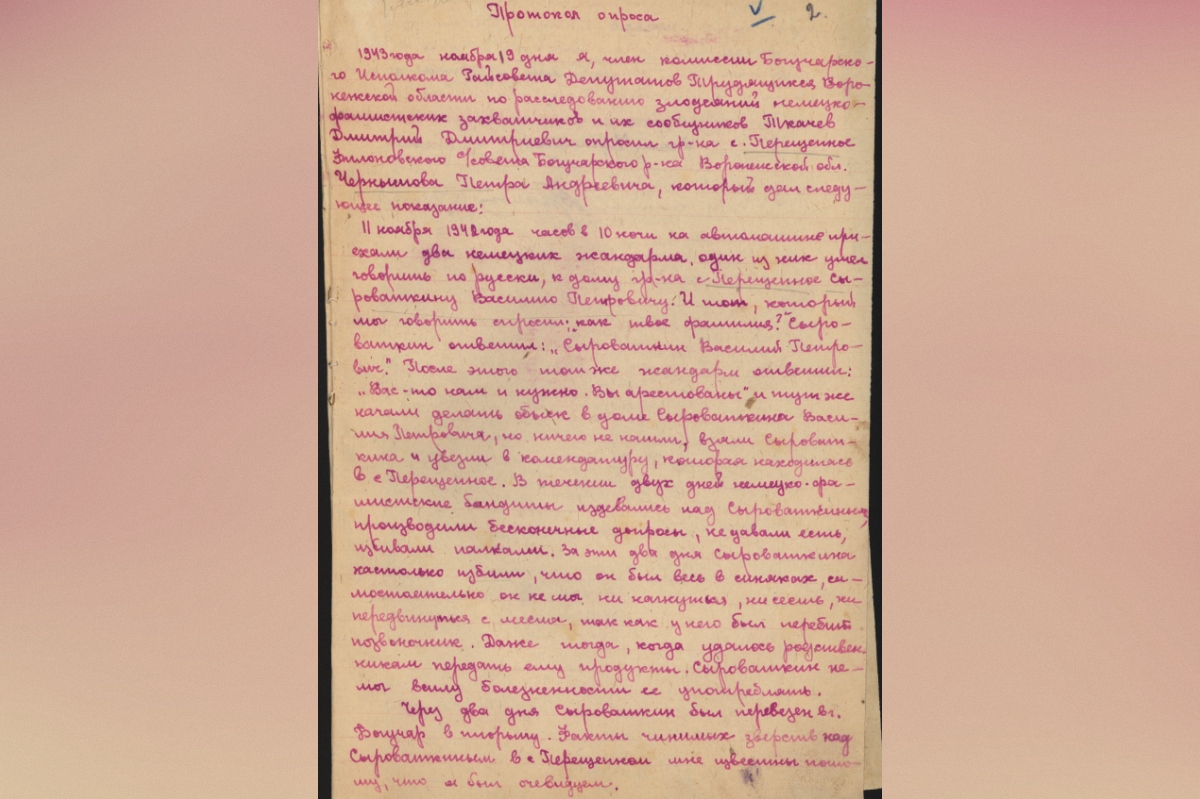 2.
Протокол опроса
1943 года ноября 19 дня я, член комиссии Богучарско-
го Исполкома Райсовета Депутатов Трудящихся Воро-
нежской области по расследованию злодеяний немецко-
фашистских захватчиков и их сообщников Ткачев
Дмитрий Дмитриевич опросил гр-на с. Перещепное
Филоновского с/совета Богучарского р-на Воронежской обл.
Чернышова Петра Андреевича, который дал следу-
ющее показание:
11 ноября 1942 года часов в 10 ночи на автомашине при-
ехали два немецких жандарма, один из них умел
говорить по русски, к дому гр-на с Перещепное Сы-
роваткину Василию Петровичу. И тот, который
мог говорить спросил: „как твое фамилия?" Сыро-
ваткин ответил: „Сыроваткин Василий Петро-
вич." После этого тот же жандарм ответил:
„Вас-то нам и нужно. Вы арестованы" и тут же
начали делать обыск в доме Сыроваткина Васи-
лия Петровича, но ничего не нашли, взяли Сыроват-
кина и увезли в комендатуру, которая находилась
в с Перещепное. В течении двух дней немецко-фа-
шистские бандиты издевались над Сыроваткиным,
производили бесконечные допросы, не давали есть,
избивали палками. За эти два дня Сыроваткина
настолько избили, что он был весь в синяках, са-
мостоятельно он не мог ни нагнуться, ни сесть, ни
передвинуться с места, так как у него был перебит
позвоночник. Даже тогда, когда удалось родствен
никам передать ему продукты. Сыроваткин не-
мог ввиду болезненности ее употреблять.
Через два дня Сыроваткин был перевезен в г.
Богучар в тюрьму. Факты чинимых зверств над
Сыроваткиным в с Перещепном мне известны пото-
му, что я был очевидцем.